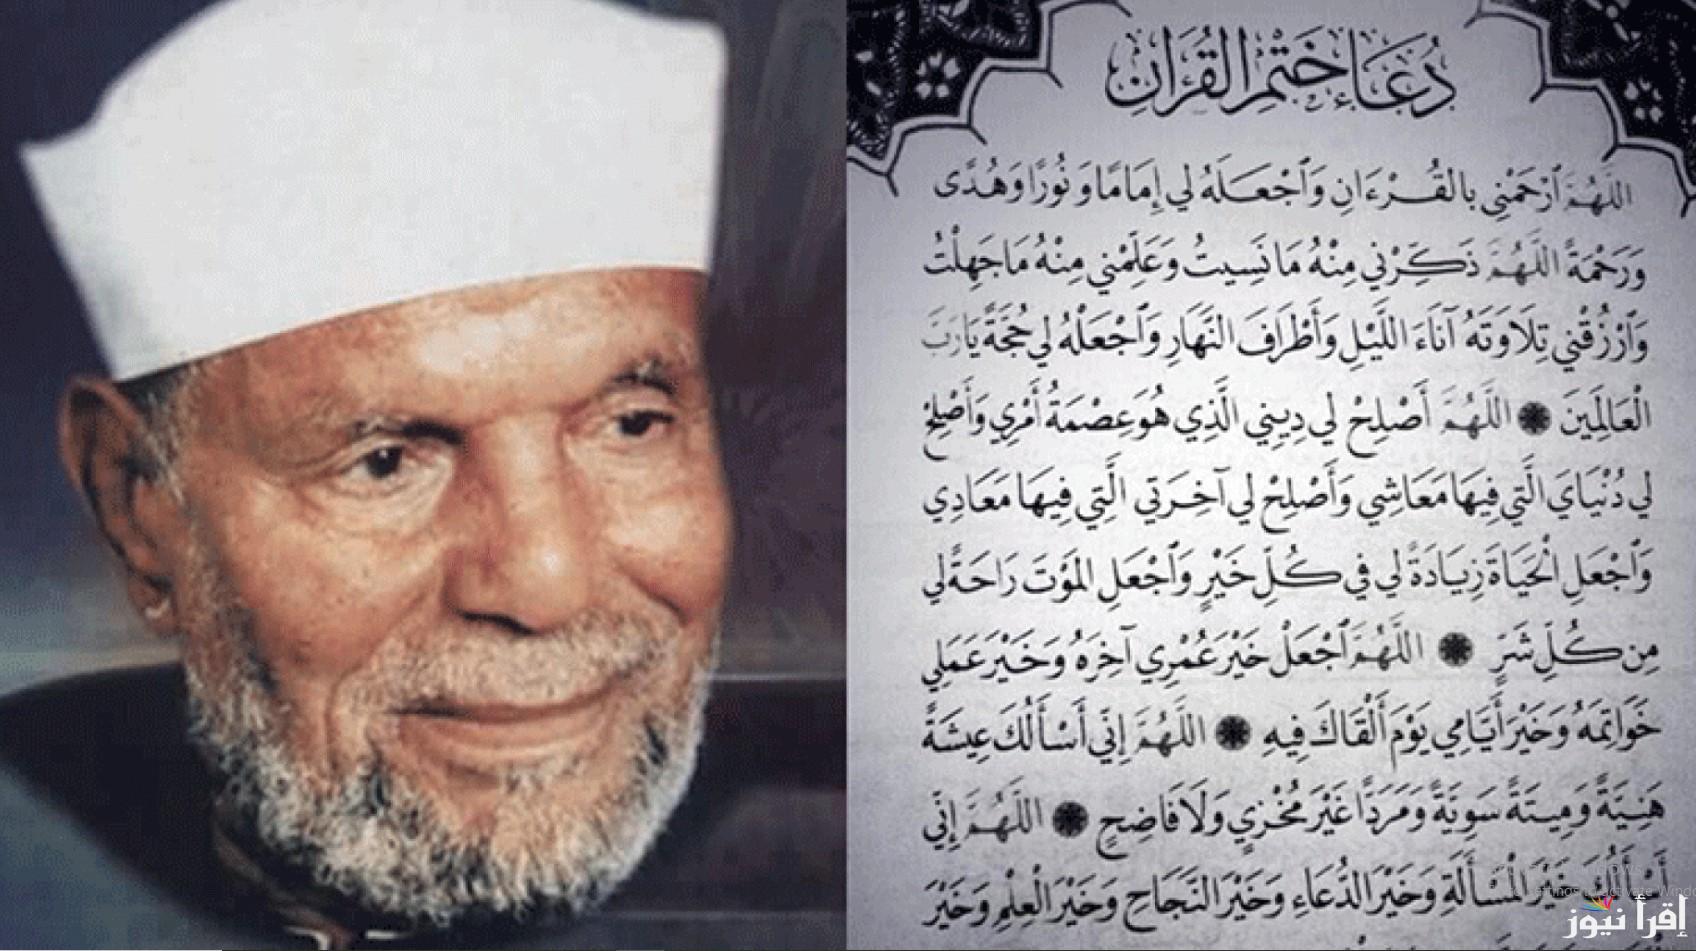 دُعَاءُ خَتْمِ الْقُرْآنِ
اللَّهُمَّ ٱرْحَمْنِي بِالقُرْءَانِ وَٱجْعَلْهُ لِي إِمَامًا وَنُورًا وَهُدًى
وَرَحْمَةً اللَّهُمَّ ذَكِّرْنِي مِنْهُ مَا نَسِيتُ وَعَلِّمْنِي مِنْهُ مَا جَهِلْتُ
وَٱرْزُقْنِي تِلَاوَتَهُ آنَاءَ اللَّيْلِ وَأَطْرَافَ النَّهَارِ وَٱجْعَلْهُ لِي حُجَّةً يَا رَبَّ
الْعَالَمِينَ ۞ اللَّهُمَّ أَصْلِحْ لِي دِينِي الَّذِي هُوَ عِصْمَةُ أَمْرِي وَأَصْلِحْ
لِي دُنْيَايَ الَّتِي فِيهَا مَعَاشِي وَأَصْلِحْ لِي آخِرَتِي الَّتِي فِيهَا مَعَادِي
وَٱجْعَلِ الْحَيَاةَ زِيَادَةً لِي فِي كُلِّ خَيْرٍ وَٱجْعَلِ المَوْتَ رَاحَةً لِي
مِن كُلِّ شَرٍّ ۞ اللَّهُمَّ ٱجْعَلْ خَيْرَ عُمْرِي آخِرَهُ وَخَيْرَ عَمَلِي
خَوَاتِمَهُ وَخَيْرَ أَيَّامِي يَوْمَ أَلْقَاكَ فِيهِ ۞ اللَّهُمَّ إِنِّي أَسْأَلُكَ عِيشَةً
هَنِيَّةً وَمِيتَةً سَوِيَّةً وَمَرَدًّا غَيْرَ مُخْزِي وَلَا فَاضِحٍ ۞ اللَّهُمَّ إِنِّي
أَسْأَلُكَ خَيْرَ الْمَسْأَلَةِ وَخَيْرَ الدُّعَاءِ وَخَيْرَ النَّجَاحِ وَخَيْرَ الْعِلْمِ وَخَيْرَ
إقرأ نيوز